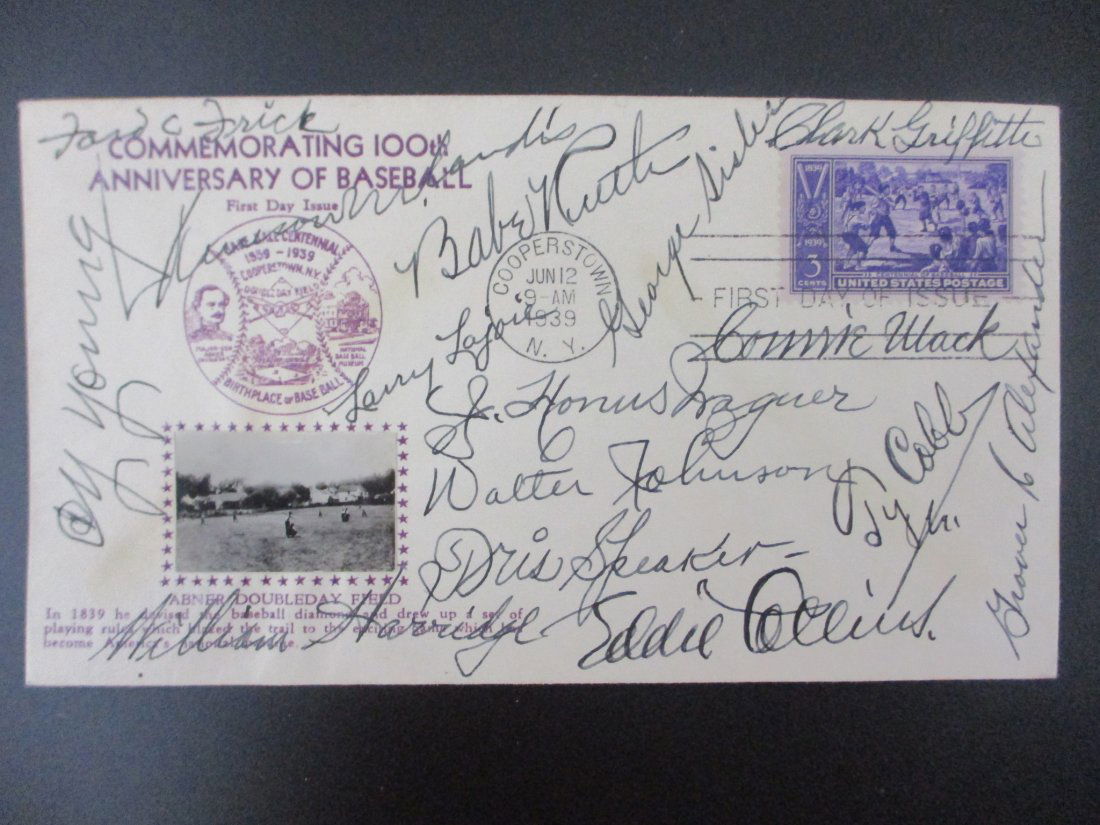 Ford C Frick
COMMEMORATING 100th
ANNIVERSARY OF BASEBALL
First Day Issue
Kenesaw M. Landis
Babe Ruth
George Sisler
Clark Griffith
1839
1939
3
CENTS
CENTENNIAL OF BASEBALL
UNITED STATES POSTAGE
Cy Young
BASEBALL CENTENNIAL
1839-1939
COOPERSTOWN, N.Y.
DOUBLEDAY FIELD
NATIONAL
BASE BALL
MUSEUM
BIRTHPLACE OF BASE BALL
COOPERSTOWN
JUN 12
9-AM
1939
N. Y.
FIRST DAY OF ISSUE
Larry Lajoie
Connie Mack
J. Honus Wagner
Walter Johnson
Ty Cobb
Grover C Alexander
Tris Speaker
Eddie Collins.
William Harridge
ABNER DOUBLEDAY FIELD
In 1839 he devised the baseball diamond and drew up a set of
playing rules which blazed the trail to the exciting game which has
become America's national game.